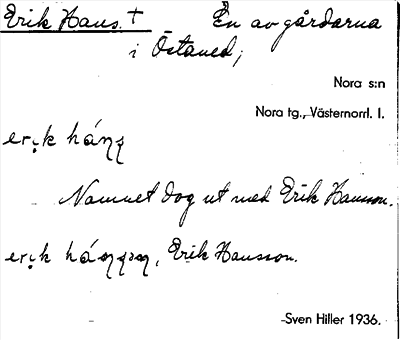 Erik Hans. + En av gårdarna
i Östaned;
Nora s:n
Nora tg., Västernorrl. l.
Namnet dog ut med Erik Hansson.
Erik Hansson.
Sven Hiller 1936.